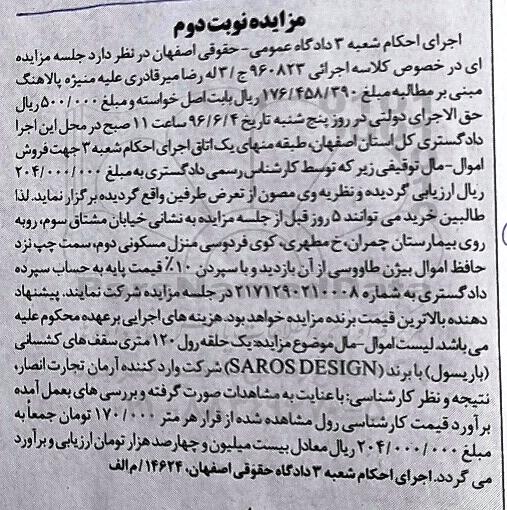 مزایده نوبت دوم
اجرای احکام شعبه ۳ دادگاه عمومی-حقوقی اصفهان در نظر دارد جلسه مزایده
ای در خصوص کلاسه اجرائی ۹۶۰۸۲۳ ج/۳ له رضا میرقادری علیه منیژه پالاهنگ
مبنی بر مطالبه مبلغ ۱۷۶/۴۵۸/۳۹۰ ریال بابت اصل خواسته و مبلغ ۵۰۰/۰۰۰ ریال
حق الاجرای دولتی در روز پنج شنبه تاریخ ۹۶/۶/۴ ساعت ۱۱ صبح در محل این اجرا
دادگستری کل استان اصفهان، طبقه منهای یک اتاق اجرای احکام شعبه ۳ جهت فروش
اموال-مال توقیفی زیر که توسط کارشناس رسمی دادگستری به مبلغ ۲۰۴/۰۰۰/۰۰۰
ریال ارزیابی گردیده و نظریه وی مصون از تعرض طرفین واقع گردیده برگزار نماید. لذا
طالبین خرید می توانند ۵ روز قبل از جلسه مزایده به نشانی خیابان مشتاق سوم، روبه
روی بیمارستان چمران، خ مطهری، کوی فردوسی منزل مسکونی دوم، سمت چپ نزد
حافظ اموال بیژن طاووسی از آن بازدید و با سپردن ۱۰٪ قیمت پایه به حساب سپرده
دادگستری به شماره ۲۱۷۱۲۹۰۲۱۰۰۰۸ در جلسه مزایده شرکت نمایند. پیشنهاد
دهنده بالاترین قیمت برنده مزایده خواهد بود. هزینه های اجرایی بر عهده محکوم علیه
می باشد. لیست اموال-مال موضوع مزایده: یک حلقه رول ۱۲۰ متری سقف های کشسانی
(باریسول) با برند (SAROS DESIGN) شرکت وارد کننده آرمان تجارت انصار،
نتیجه و نظر کارشناسی: با عنایت به مشاهدات صورت گرفته و بررسی های بعمل آمده
برآورد قیمت کارشناسی رول مشاهده شده از قرار هر متر ۱۷۰/۰۰۰ تومان جمعاً به
مبلغ ۲۰۴/۰۰۰/۰۰۰ ریال معادل بیست میلیون و چهارصد هزار تومان ارزیابی و برآورد
می گردد. اجرای احکام شعبه ۳ دادگاه حقوقی اصفهان، ۱۴۶۲۴/م الف